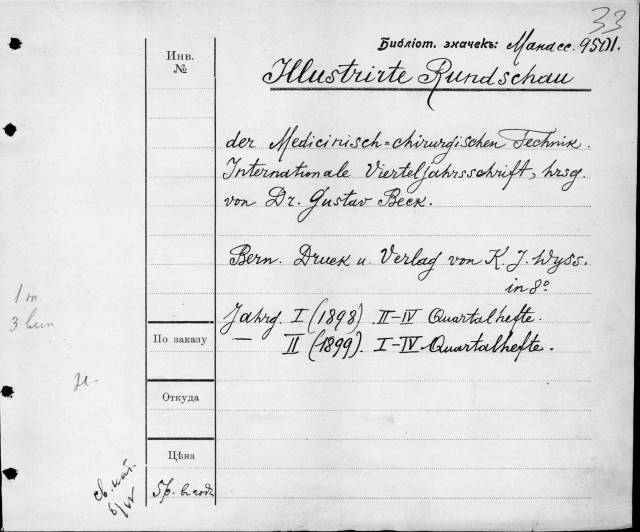 33
Библіот. значекъ: Манасс. 950/1.
Инв.
№
Illustrirte Rundschau
der Medicinisch=chirurgischen Technik.
Internationale Vierteljahrsschrift, hrsg.
von Dr. Gustav Beck.
Bern. Druck u. Verlag von K. J. Wyss.
in 8º
Jahrg. I (1898) II-IV Quartalhefte.
— II (1899). I-IV Quartalhefte.
1 т
3 вып
По заказу
Откуда
Цѣна
5р. в годъ